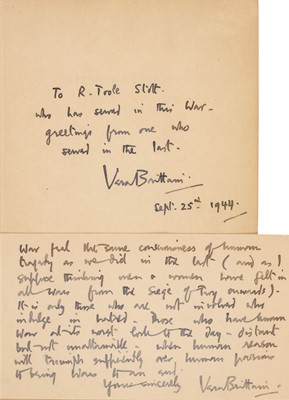 To R. Toole Stott.
who has served in this War -
greetings from one who
served in the last.
Vera Brittain.
Sept. 25th 1944.
War feel the same consciousness of human
tragedy as we did in the last (and as I
suppose thinking men & women have felt in
all wars from the Siege of Troy onwards).
It is only those who are not involved who
indulge in hatred. Those who have known
War at its worst look to the day - distant
but not unattainable - when human reason
will triumph sufficiently over human passions
to bring Wars to an end.
Yours sincerely Vera Brittain.